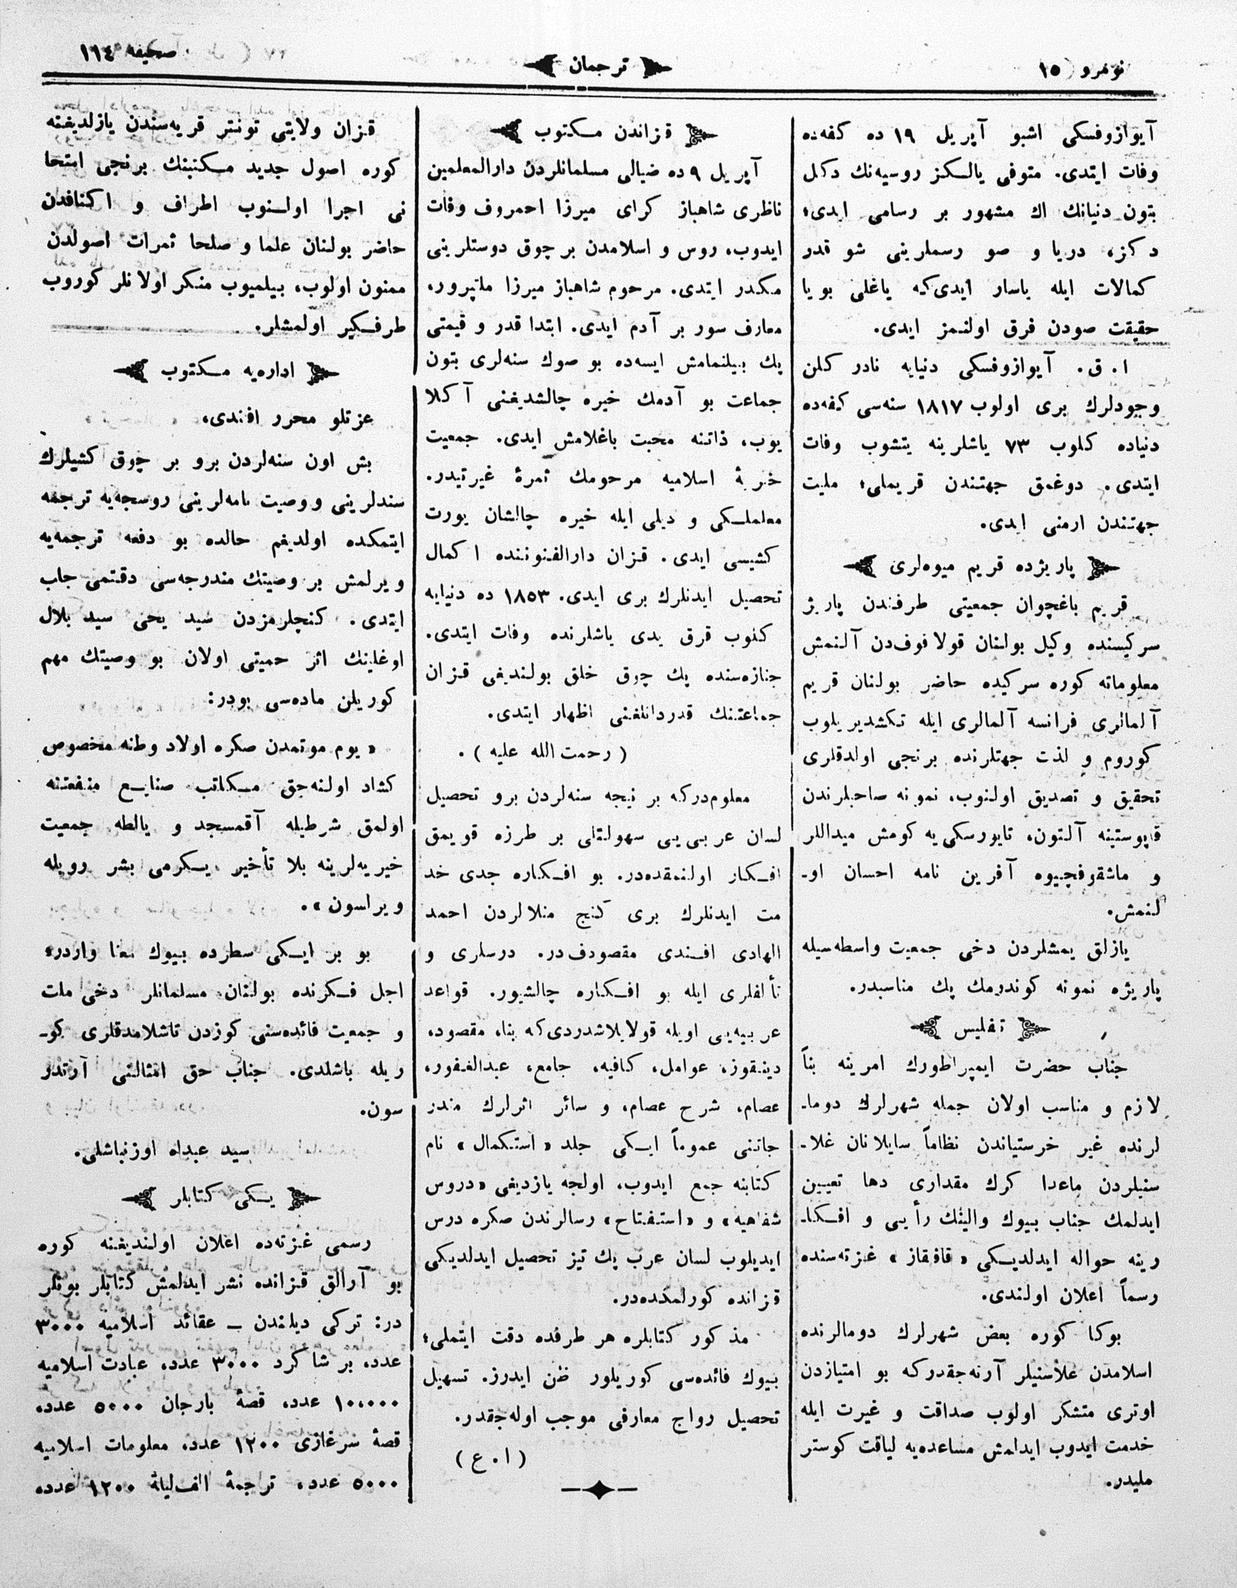 نومرو (١٥
ترجمان
صحيفه ١١٤
آيوازوفسكى اشبو آپريل ١٩ ده كفه‌ده
وفات ايتدى. متوفى يالـكز روسيه‌نك دكل
بتون دنيانك اك مشهور بر رسامى ايدى؛
دكز، دريا و صو رسملرينى شو قدر
كمالات ايله ياسار ايدى‌كه ياغلى بويا
حقيقت صودن فرق اولنمز ايدى.
ا. ق. آيوازوفسكى دنيايه نادر كلن
وجودلرك برى اولوب ١٨١٧ سنه‌سى كفه‌ده
دنياده كلوب ٧٣ ياشلرينه يتشوب وفات
ايتدى. دوغمق جهتندن قريملى؛ مليت
جهتندن ارمنى ايدى.
پاريژده قريم ميوه‌لرى
قريم باغچوان جمعيتى طرفندن پاريژ
سركيسنده وكيل بولنان قولافوف‌دن آلنمش
معلوماته كوره سركيده حاضر بولنان قريم
آلمالرى فرانسه آلمالرى ايله تـكشديريلوب
كوروم و لذت جهتلرنده برنجى اولدقلرى
تحقيق و تصديق اولنوب، نمونه صاحبلرندن
قاپوستينه آلتون، تايورسكى‌يه كومش ميداللر
و ماشقوفچيوه آفرين نامه احسان او-
لنمش.
يازلق يمشلردن دخى جمعيت واسطه‌سيله
پاريژه نمونه كوندرمك پك مناسبدر.
تفليس
جناب حضرت ايمپراطورك امرينه بناً
لازم و مناسب اولان جمله شهرلرك دوما-
لرنده غير خرستياندن نظاماً سايلانان غلا-
سنيلردن ماعدا كرك مقدارى دها تعيين
ايدلمك جناب بيوك والينك رأيى و افـكا-
رينه حواله ايدلديـكى «قافقاز» غزته‌سنده
رسماً اعلان اولندى.
بوكا كوره بعض شهرلرك دومالرنده
اسلامدن غلاسنيلر آرنه‌جقدركه بو امتيازدن
اوترى متشكر اولوب صداقت و غيرت ايله
خدمت ايدوب ايدلمش مساعده‌يه لياقت كوستر
مليدر.
قزاندن مـكتوب
آپريل ٩ ده ضيالى مسلمانلردن دارالمعلمين
ناظرى شاهباز كراى ميرزا احمروف وفات
ايدوب، روس و اسلامدن بر چوق دوستلرينى
مـكدر ايتدى. مرحوم شاهباز ميرزا ملتپرور،
معارف سور بر آدم ايدى. ابتدا قدر و قيمتى
پك بيلنمامش ايسه‌ده بو صوك سنه‌لرى بتون
جماعت بو آدمك خيره چالشديغنى آكلا
يوب، ذاتنه محبت باغلامش ايدى. جمعيت
خيريهٔ اسلاميه مرحومك ثمرهٔ غيرتيدر.
معلملـكى و ديلى ايله خيره چالشان يورت
كشيسى ايدى. قزان دارالفنوننده اكمال
تحصيل ايدنلرك برى ايدى. ١٨٥٣ ده دنيايه
كلوب قرق يدى ياشلرنده وفات ايتدى.
جنازه‌سنده پك چوق خلق بولنديغى قزان
جماعتنك قدردانلغنى اظهار ايتدى.
(رحمت الله عليه).
معلوم‌دركه بر نيجه سنه‌لردن برو تحصيل
لسان عربى‌يى سهولتلى بر طرزه قويمق
افـكار اولنمقده‌در. بو افـكاره جدى خد
مت ايدنلرك برى كنج منلالردن احمد
الهادى افندى مقصودف‌در. درسلرى و
تأليفلرى ايله بو افـكاره چالشيور. قواعد
عربيه‌يى اويله قولايلاشدردى‌كه بنا، مقصود،
دينقوز، عوامل، كافيه، جامع، عبدالغفور،
عصام، شرح عصام، و سائر اثرلرك مندر
جاتنى عموماً ايـكى جلد «استكمال» نام
كتابنه جمع ايدوب، اولجه يازديغى «دروس
شفاهيه» و «استفتاح» رسالرندن صكره درس
ايديلوب لسان عرب پك تيز تحصيل ايدلديكى
قزانده كورلمكده‌در.
مذكور كتابلره هر طرفده دقت ايتملى؛
بيوك فائده‌سى كوريلور ظن ايدرز. تسهيل
تحصيل رواج معارفى موجب اوله‌جقدر.
(ا. ع)
قزان ولايتى تونتر قريه‌سندن يازلديغنه
كوره اصول جديد مـكتبنك برنجى امتحا
نى اجرا اولـنوب اطراف و اكنافدن
حاضر بولنان علما و صلحا ثمرات اصولدن
ممنون اولوب، بيلميوب منكر اولانلر كوروب
طرفـكير اولمشلر.
اداره‌يه مـكتوب
عزتلو محرر افندى،
بش اون سنه‌لردن برو بر چوق كشيلرك
سندلرينى و وصيت نامه‌لرينى روسجه‌يه ترجمه
ايتمكده اولديغم حالده بو دفعه ترجمه‌يه
ويرلمش بر وصيتك مندرجه‌سى دقتمى جلب
ايتدى. كنجلرمزدن سيد يحى سيد بلال
اوغلينك اثر حميتى اولان بو وصيتك مهم
كوريلن ماده‌سى بودر:
«يوم موتمدن صكره اولاد وطنه مخصوص
كشاد اولنه‌جق مـكاتب صنايع منفعتنه
اولمق شرطيله آقمسجد و يالطه جمعيت
خيريه‌لرينه بلا تأخير يـكرمى بشر روبله
ويراسون».
بو بر ايـكى سطرده بيوك معنا واردر؛
اجل فـكرنده بولنان مسلمانلر دخى ملت
و جمعيت فائده‌سنى كوزدن تاشلامدقلرى كو-
ريله باشلدى. جناب حق امثالنى آرتدر
سون.
سيد عبدالله اوزنباشلى.
يـكى كتابلر
رسمى غزته‌ده اعلان اولنديغنه كوره
بو آرالق قزانده نشر ايدلمش كتابلر بونلر
در: تركى ديلندن ـ عقائد اسلاميه ٣٠٠٠
عدد، بر شاكرد ٣٠٠٠ عدد، عبادت اسلاميه
١٠،٠٠٠ عدد، قصهٔ بارجان ٥٠٠٠ عدد،
قصهٔ سرغازى ١٢٠٠ عدد، معلومات اسلاميه
٥٠٠٠ عدد، ترجمهٔ الف‌ليلة ١٢٠٠ عدد،